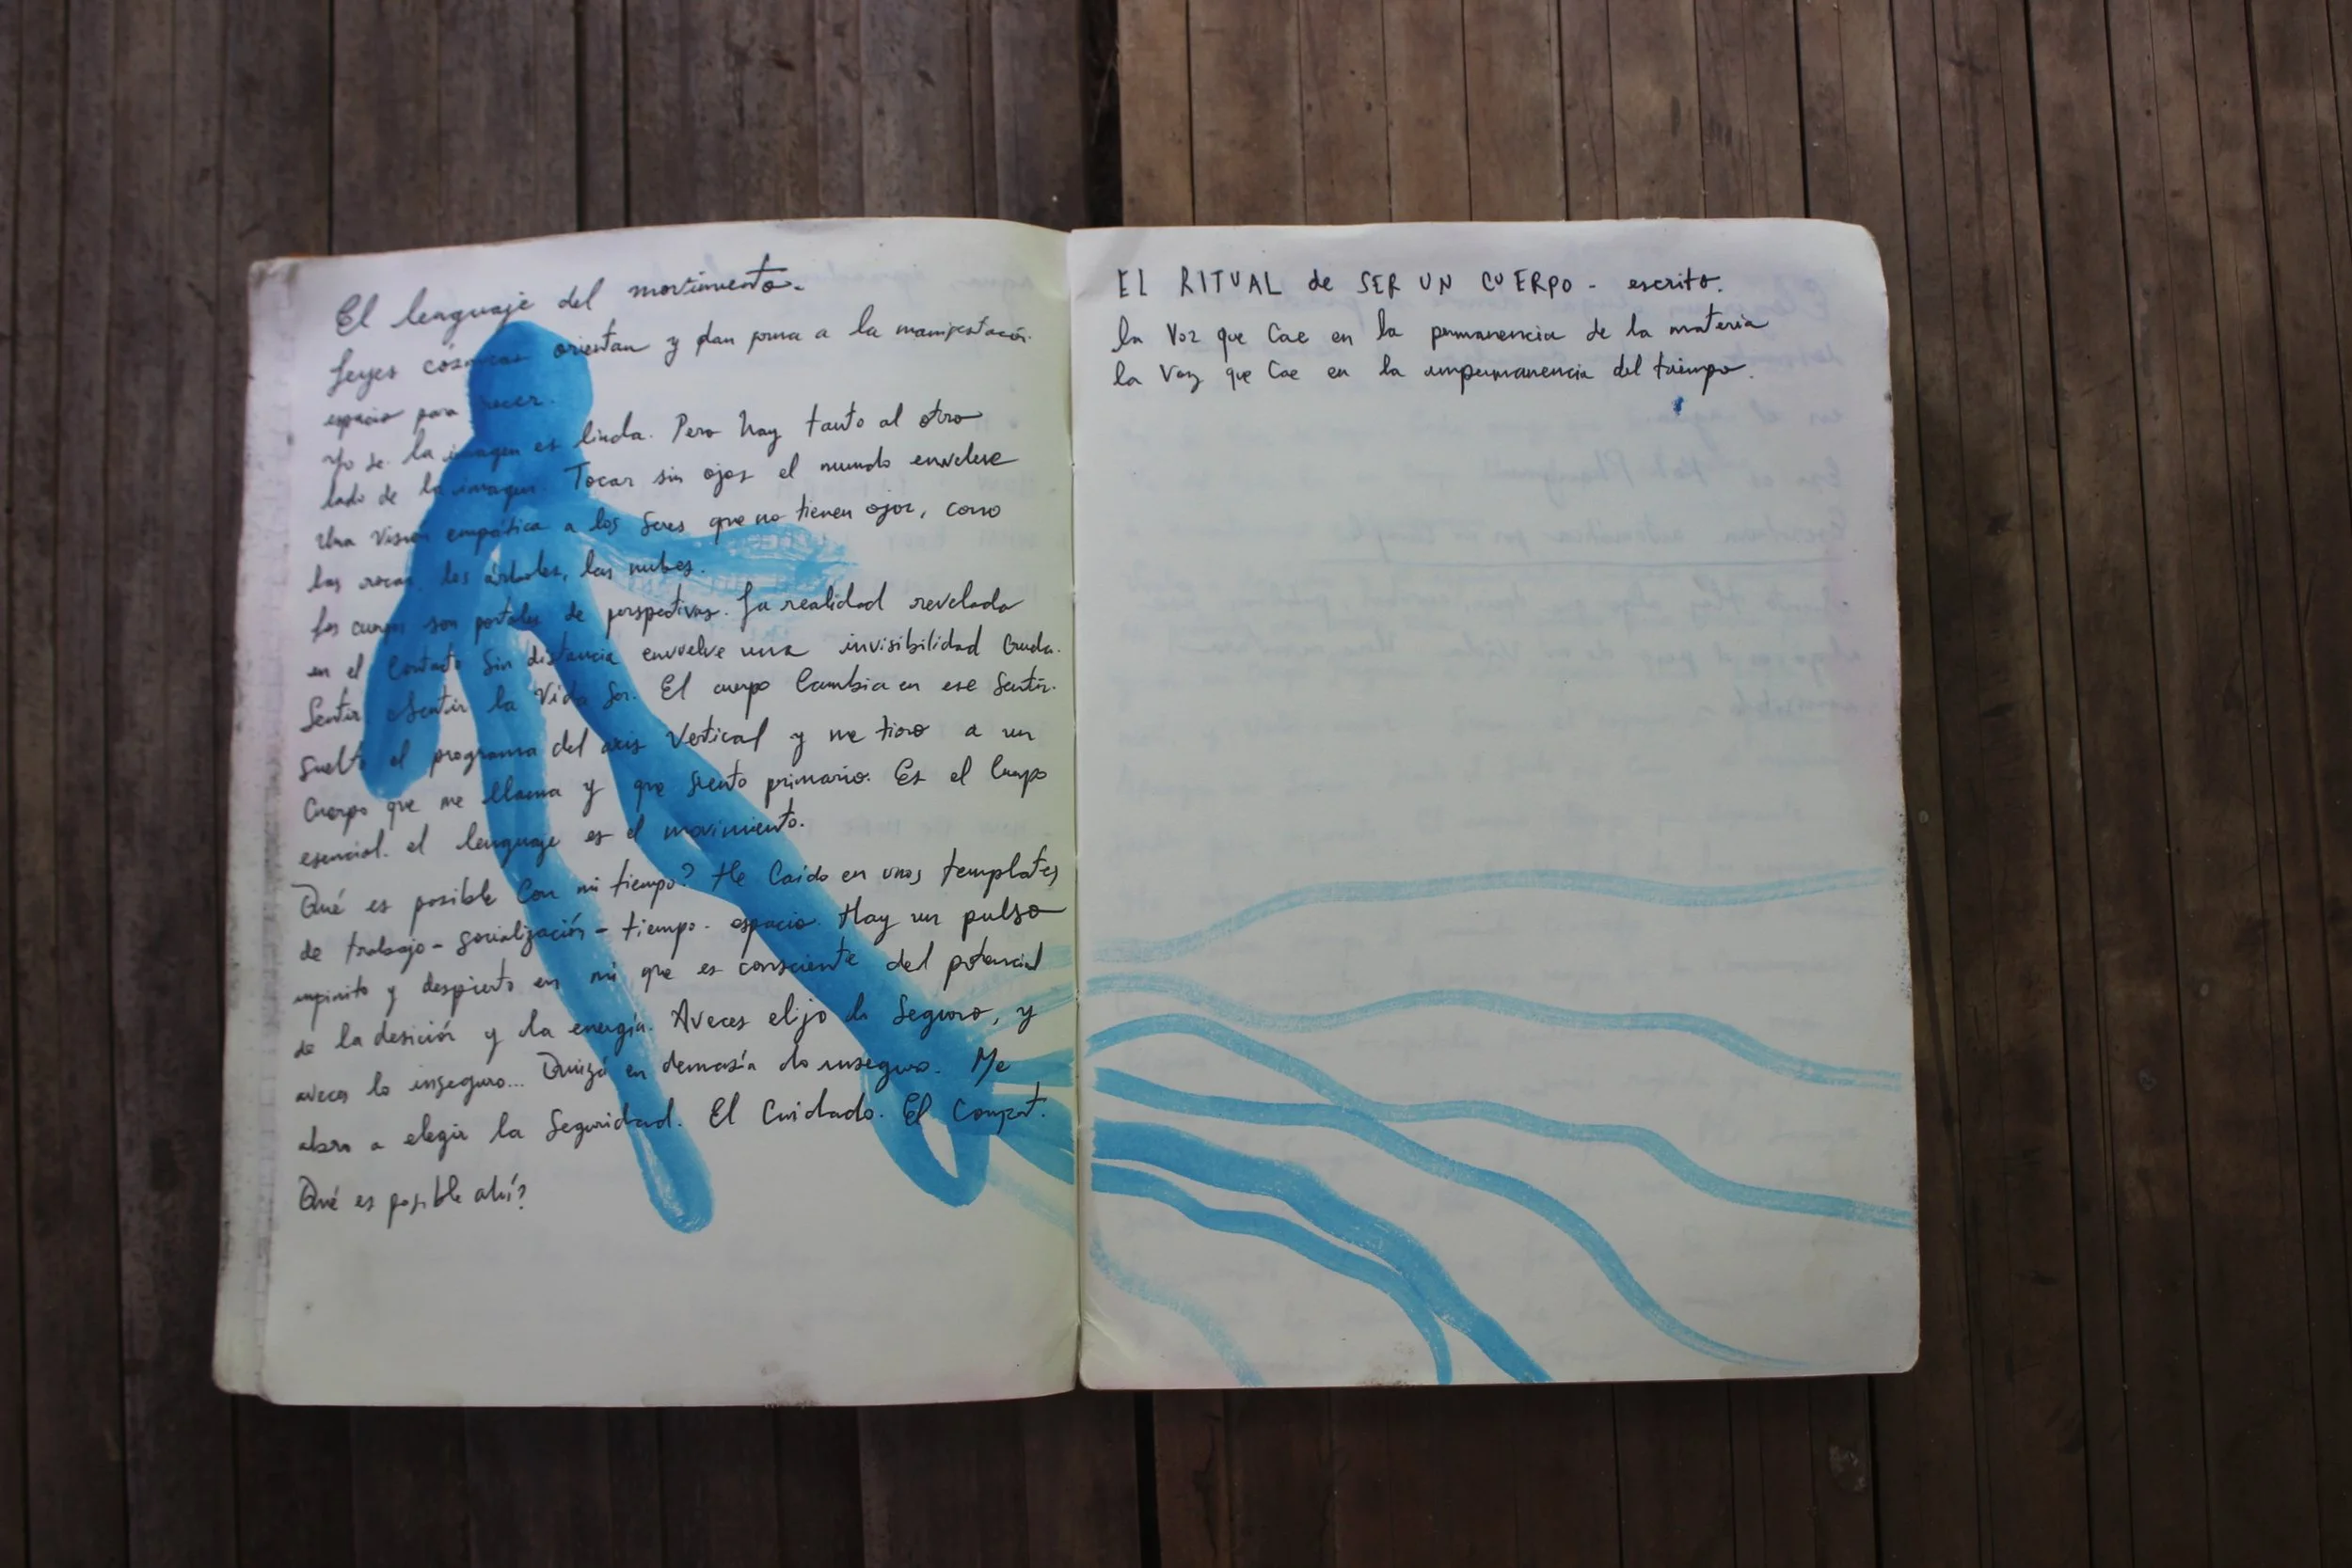 El lenguaje del movimiento.
Leyes cósmicas orientan y dan forma a la manifestación.
espacio para
Yo se. la imagen es linda. Pero hay tanto al otro
lado de la imagen. Tocar sin ojos el mundo envuelve
Una visión empática a los seres que no tienen ojos, como
las rocas, los árboles, las nubes.
Los cuerpos son portales de perspectivas. La realidad revelada
en el contacto sin distancia envuelve una invisibilidad cruda.
Sentir, sentir la Vida Ser. El cuerpo Cambia en ese sentir.
Suelto el programa del axis Vertical y me tiro a un
Cuerpo que me llama y que siento primario. Es el Cuerpo
esencial. el lenguaje es el movimiento.
Qué es posible con mi tiempo? He Caído en unos templates
de trabajo - socialización - tiempo - espacio. Hay un pulso
infinito y despierto en mi que es consciente del potencial
de la desición y la energía. Aveces elijo lo Seguro, y
aveces lo inseguro... Quizá en demasía lo inseguro. Me
abro a elegir la Seguridad. El Cuidado. El Confort.
Qué es posible ahí?
EL RITUAL de SER UN CUERPO - escrito.
la Voz que Cae en la permanencia de la materia
la Voz que Cae en la impermanencia del tiempo.